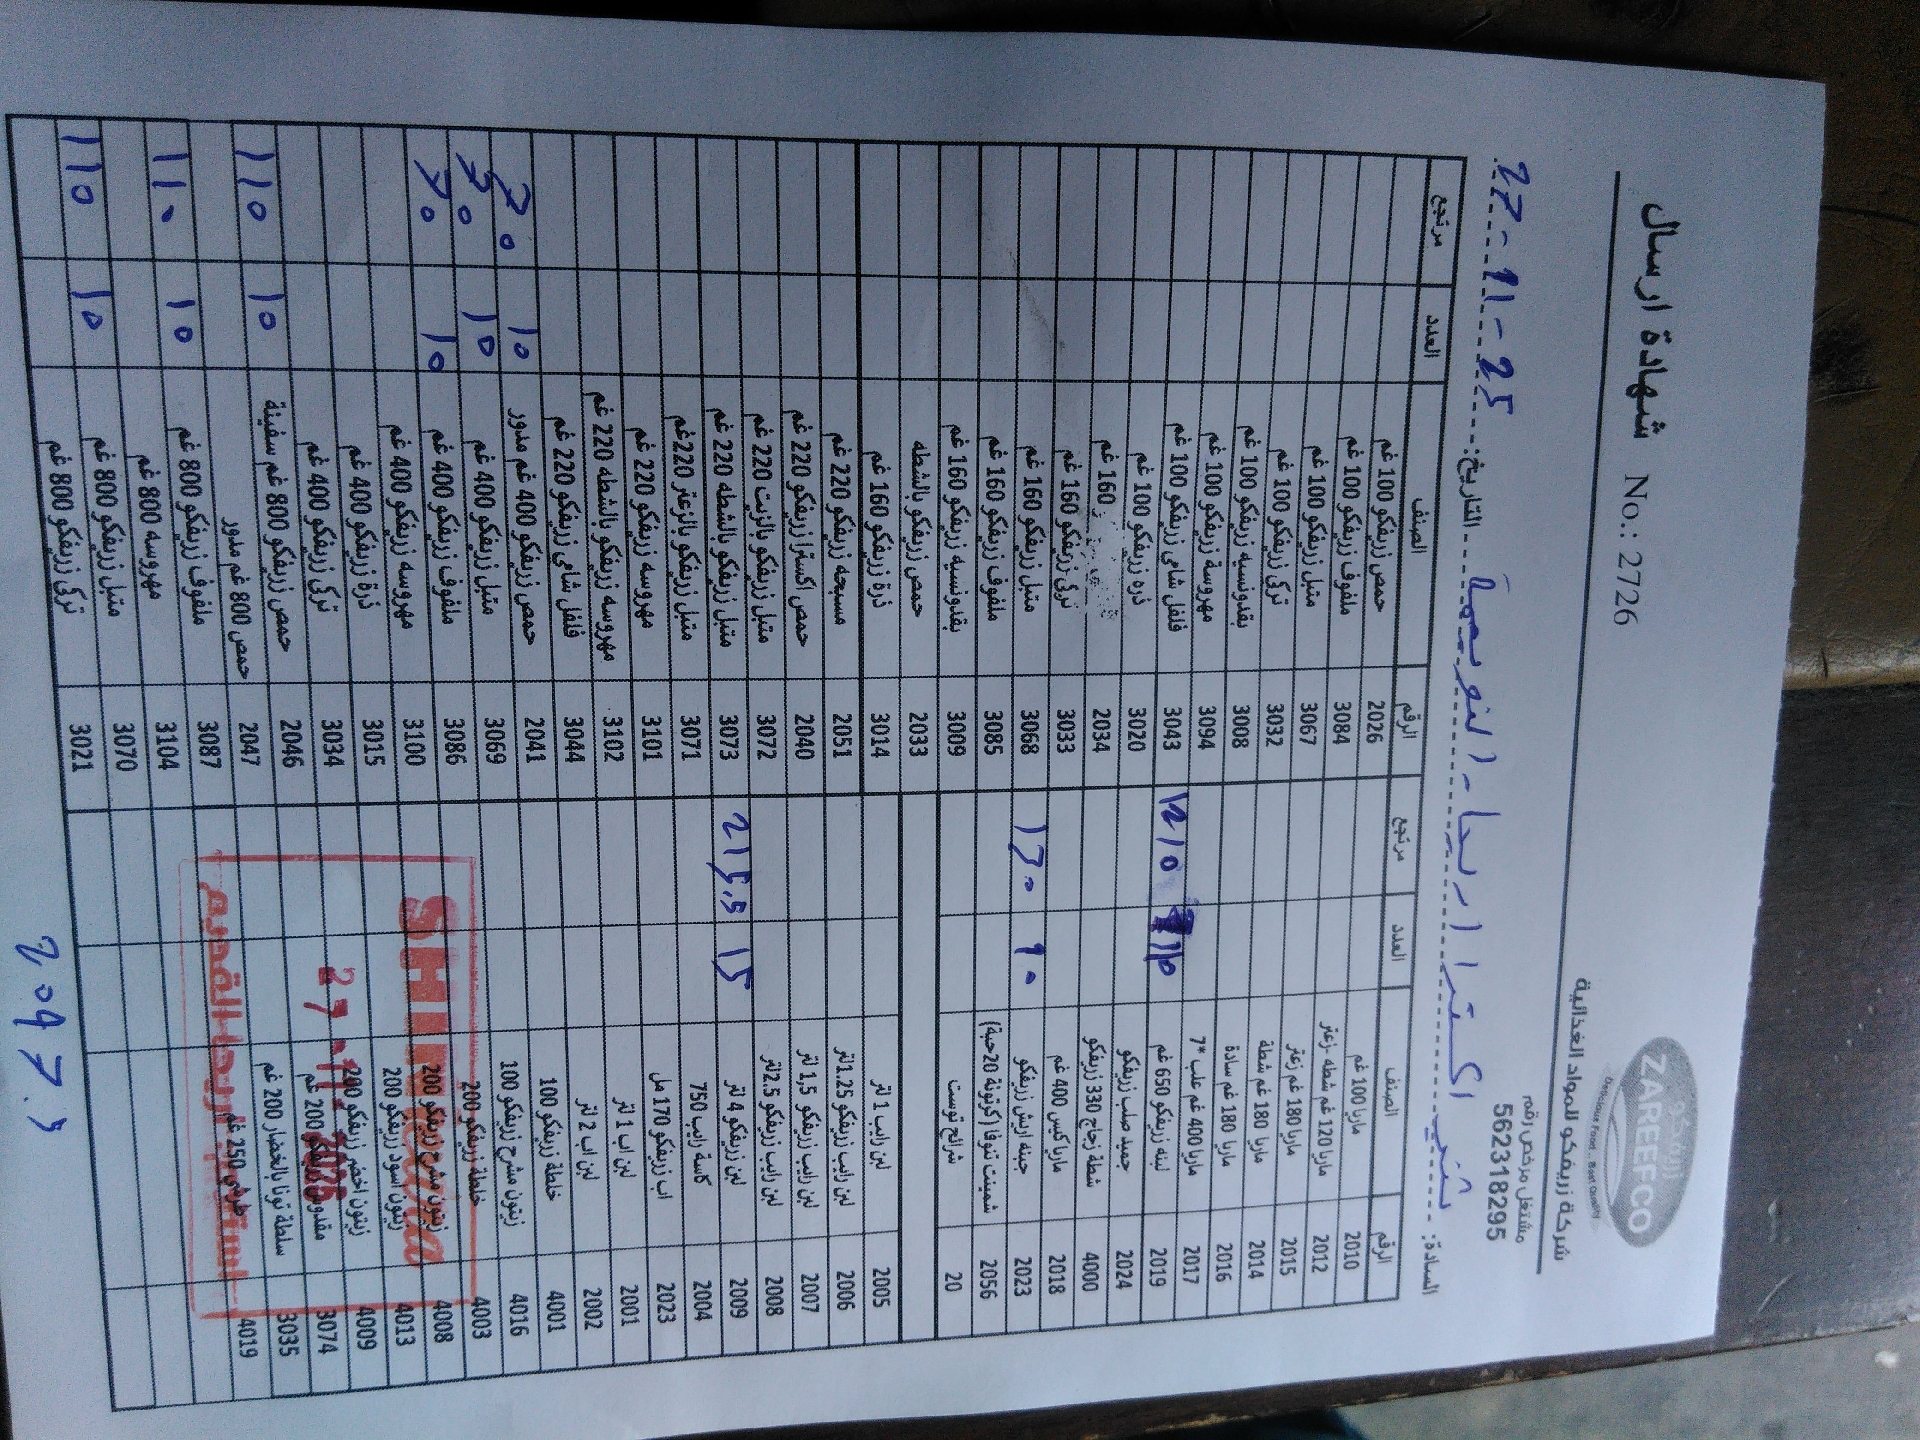 شهادة ارسال No.: 2726
ZAREEFCO
Delicious Food .. Best Quality
شركة زريفكو للمواد الغذائية
مشتغل مرخص رقم
562318295
السادة: التاريخ: 25-11-27
الرقم الصنف العدد مرتجع الرقم الصنف العدد مرتجع
2010 ماريا 100 غم 2026 حمص زريفكو 100 غم
2012 ماريا 120 غم شطه -زعتر 3084 ملفوف زريفكو 100 غم
2015 ماريا 180 غم زعتر 3067 متبل زريفكو 100 غم
2014 ماريا 180 غم شطة 3032 تركي زريفكو 100 غم
2016 ماريا 180 غم سادة 3008 بقدونسيه زريفكو 100 غم
2017 ماريا 400 غم علب *7 3094 مهروسة زريفكو 100 غم
2019 لبنه زريفكو 650 غم 3043 فلفل شامي زريفكو 100 غم
2024 جميد صلب زريفكو 3020 ذره زريفكو 100 غم
4000 شطة زجاج 330 زريفكو 2034 160 غم
2018 ماريا كيس 400 غم 3033 تركي زريفكو 160 غم
2023 جبنه ارش زريفكو 90 130 3068 متبل زريفكو 160 غم
2056 شمينت تنوفا (كرتونة 20حبة) 3085 ملفوف زريفكو 160 غم
20 شرائح توست 3009 بقدونسيه زريفكو 160 غم
2033 حمص زريفكو بالشطه
2005 لبن رايب 1 لتر 3014 ذرة زريفكو 160 غم
2006 لبن رايب زريفكو 1.25لتر 2051 مسبحه زريفكو 220 غم
2007 لبن رايب زريفكو 1,5 لتر 2040 حمص اكسترا زريفكو 220 غم
2008 لبن رايب زريفكو 2.5لتر 3072 متبل زريفكو بالزيت 220 غم
2009 لبن زريفكو 4 لتر 15 215.5 3073 متبل زريفكو بالشطه 220 غم
2004 كاسة رايب 750 3071 متبل زريفكو بالزعتر 220غم
2023 اب زريفكو 170 مل 3101 مهروسه زريفكو 220 غم
2001 لبن اب 1 لتر 3102 مهروسه زريفكو بالشطه 220 غم
2002 لبن اب 2 لتر 3044 فلفل شامي زريفكو 220 غم
4001 خلطة زريفكو 100 2041 حمص زريفكو 400 غم مدور 10 70
4016 زيتون مشرح زريفكو 100 3069 متبل زريفكو 400 غم 10 70
4003 خلطة زريفكو 200 3086 ملفوف زريفكو 400 غم 10 70
4008 زيتون مشرح زريفكو 200 3100 مهروسه زريفكو 400 غم
4013 زيتون اسود زريفكو 200 3015 ذرة زريفكو 400 غم
4009 زيتون اخضر زريفكو 200 3034 تركي زريفكو 400 غم
3074 مقدوس زريفكو 200 غم 2046 حمص زريفكو 800 غم سفينة 10 110
3035 سلطة تونا بالخضار 200 غم 2047 حمص 800 غم مدور
4019 طرشي 250 غم 3087 ملفوف زريفكو 800 غم 10 110
3104 مهروسه 800 غم
3070 متبل زريفكو 800 غم 10 110
3021 تركي زريفكو 800 غم
2097.5